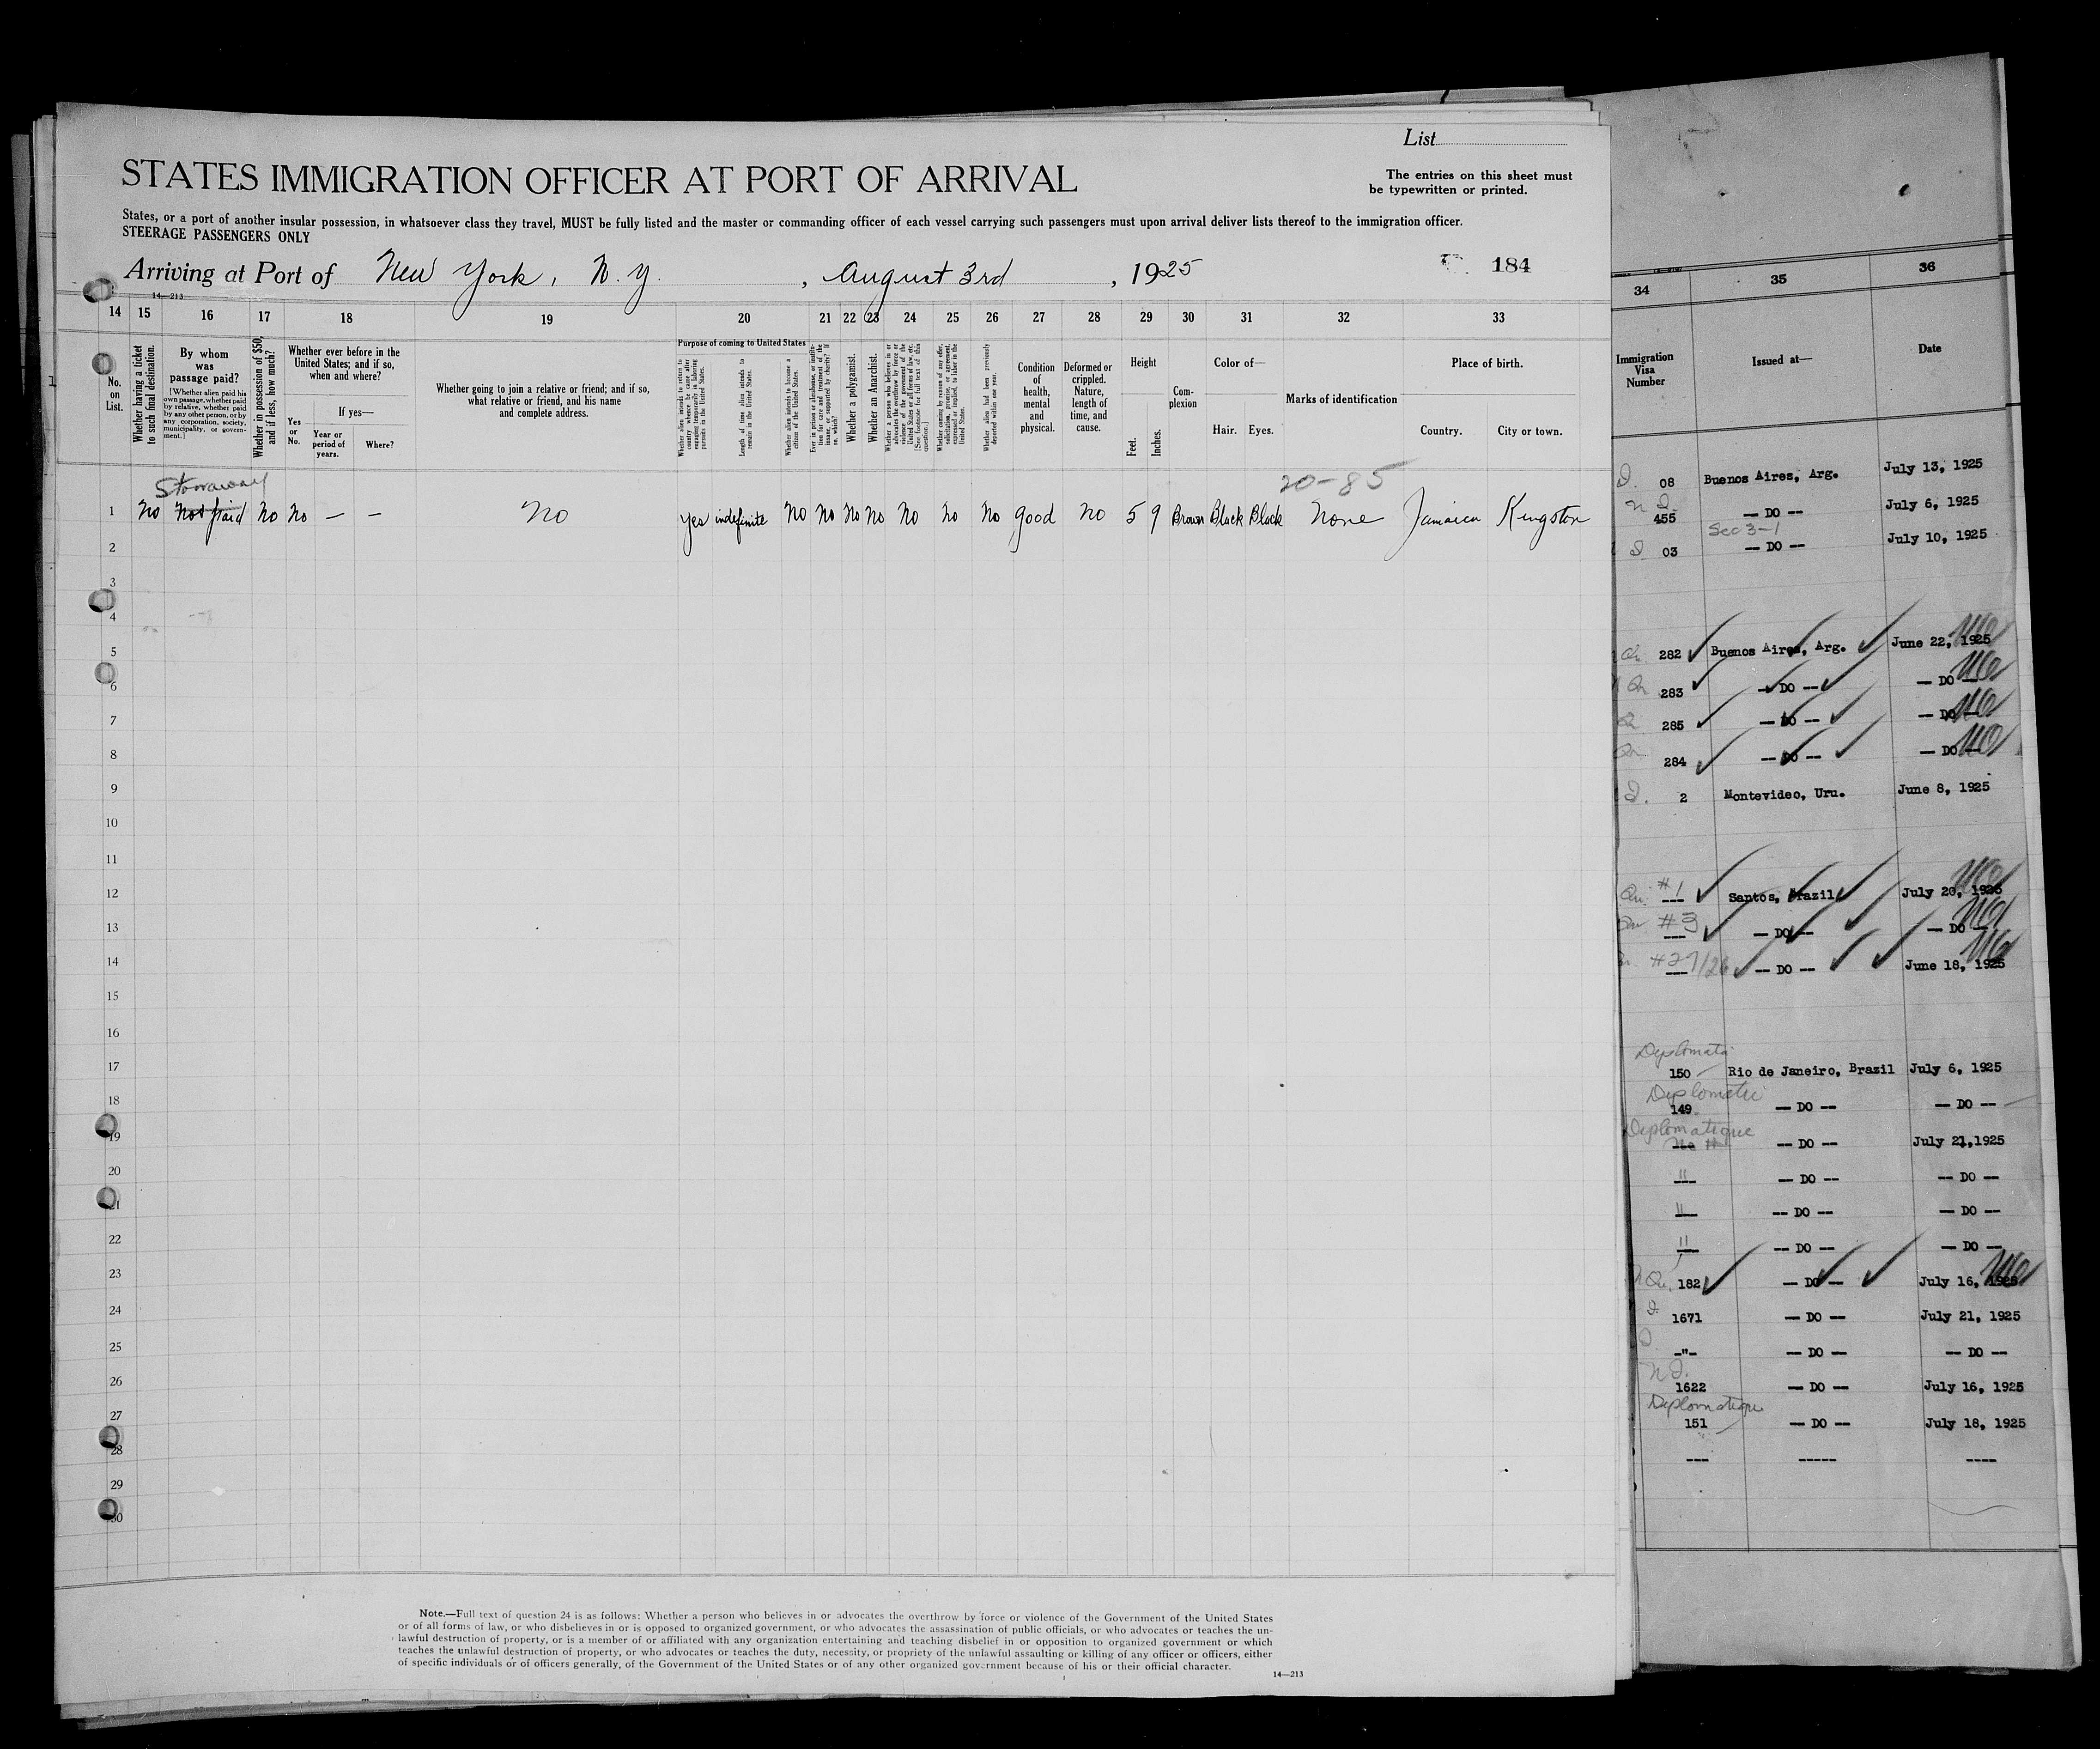 List
STATES IMMIGRATION OFFICER AT PORT OF ARRIVAL
The entries on this sheet must
be typewritten or printed.
States, or a port of another insular possession, in whatsoever class they travel, MUST be fully listed and the master or commanding officer of each vessel carrying such passengers must upon arrival deliver lists thereof to the immigration officer.
STEERAGE PASSENGERS ONLY
Arriving at Port of New York, N. Y. , August 3rd , 1925
184
14—213
14 15 16 17 18 19 20 21 22 23 24 25 26 27 28 29 30 31 32 33
No. on List.
Whether having a ticket to such final destination.
By whom was passage paid?
[Whether alien paid his own passage, whether paid by relative, whether paid by any other person, or by any corporation, society, municipality, or government.]
Whether in possession of $50, and if less, how much?
Whether ever before in the United States; and if so, when and where?
Yes or No.
If yes—
Year or period of years.
Where?
Whether going to join a relative or friend; and if so, what relative or friend, and his name and complete address.
Purpose of coming to United States
Length of time alien intends to remain in the United States.
Whether alien intends to become a citizen of the United States.
Whether a polygamist.
Whether an Anarchist.
Whether alien had been previously deported within one year.
Condition of health, mental and physical.
Deformed or crippled. Nature, length of time, and cause.
Height
Feet. Inches.
Complexion
Color of—
Hair. Eyes.
Marks of identification
Place of birth.
Country. City or town.
Stowaway
20-85
1 No Not paid No No — — No yes indefinite No No No No No No No good No 5 9 Brown Black Black None Jamaica Kingston
2
3
4
5
6
7
8
9
10
11
12
13
14
15
16
17
18
19
20
21
22
23
24
25
26
27
28
29
30
Note.—Full text of question 24 is as follows: Whether a person who believes in or advocates the overthrow by force or violence of the Government of the United States
or of all forms of law, or who disbelieves in or is opposed to organized government, or who advocates the assassination of public officials, or who advocates or teaches the un-
lawful destruction of property, or is a member of or affiliated with any organization entertaining and teaching disbelief in or opposition to organized government or which
teaches the unlawful destruction of property, or who advocates or teaches the duty, necessity, or propriety of the unlawful assaulting or killing of any officer or officers, either
of specific individuals or of officers generally, of the Government of the United States or of any other organized government because of his or their official character.
14—213
34 35 36
Immigration Visa Number
Issued at—
Date
08 Buenos Aires, Arg. July 13, 1925
455 -- DO -- July 6, 1925
Sec 3-1
03 -- DO -- July 10, 1925
282 Buenos Aires, Arg. June 22, 1925
283 -- DO -- -- DO --
285 -- DO -- -- DO --
284 -- DO -- -- DO --
2 Montevideo, Uru. June 8, 1925
#1 --- Santos, Brazil July 20, 1925
#3 --- -- DO -- -- DO --
#27/26 --- -- DO -- June 18, 1925
150 Rio de Janeiro, Brazil July 6, 1925
Diplomatic
149 -- DO -- -- DO --
Diplomatique
--- -- DO -- July 21, 1925
--- -- DO -- -- DO --
--- -- DO -- -- DO --
--- -- DO -- -- DO --
182 -- DO -- July 16, 1925
1671 -- DO -- July 21, 1925
-"- -- DO -- -- DO --
1622 -- DO -- July 16, 1925
Diplomatique
151 -- DO -- July 18, 1925
--- ----- ----